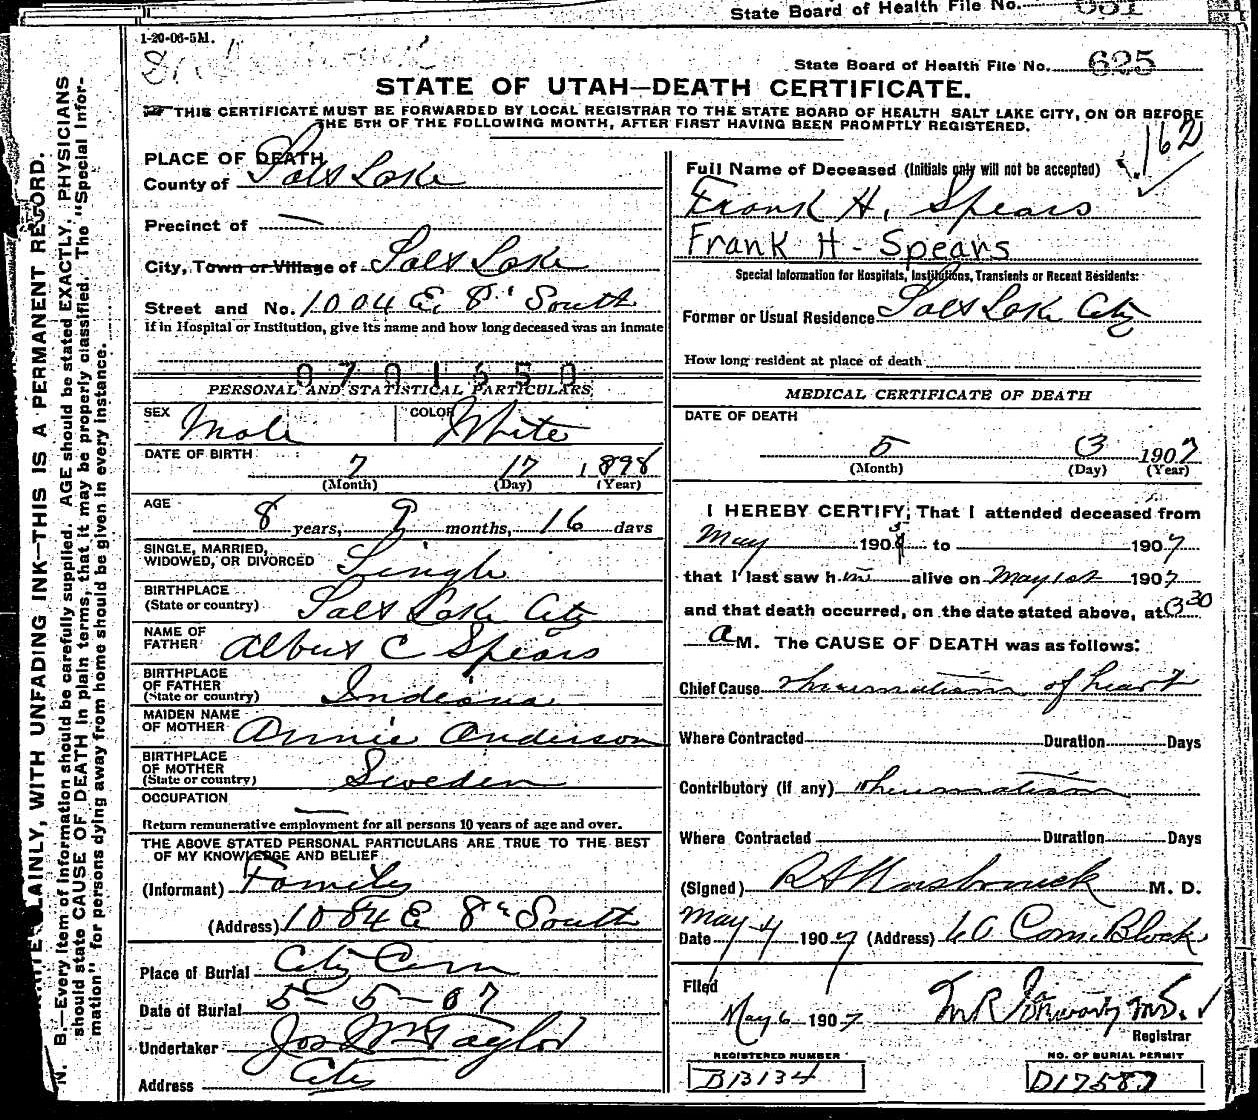 State Board of Health File No. 631
1-20-06-5M.
State Board of Health File No. 625
STATE OF UTAH—DEATH CERTIFICATE.
THIS CERTIFICATE MUST BE FORWARDED BY LOCAL REGISTRAR TO THE STATE BOARD OF HEALTH SALT LAKE CITY, ON OR BEFORE
THE 5TH OF THE FOLLOWING MONTH, AFTER FIRST HAVING BEEN PROMPTLY REGISTERED.
162
PLACE OF DEATH
County of Salt Lake
Precinct of —
City, Town or Village of Salt Lake
Street and No. 1004 E. 8" South
If in Hospital or Institution, give its name and how long deceased was an inmate
0701550
PERSONAL AND STATISTICAL PARTICULARS
SEX Male COLOR White
DATE OF BIRTH
7 17 1898
(Month) (Day) (Year)
AGE
8 years, 9 months, 16 days
SINGLE, MARRIED,
WIDOWED, OR DIVORCED Single
BIRTHPLACE
(State or country) Salt Lake City
NAME OF
FATHER Albert C Spears
BIRTHPLACE
OF FATHER
(State or country) Indiana
MAIDEN NAME
OF MOTHER Annie Anderson
BIRTHPLACE
OF MOTHER
(State or country) Sweden
OCCUPATION —
Return remunerative employment for all persons 10 years of age and over.
THE ABOVE STATED PERSONAL PARTICULARS ARE TRUE TO THE BEST
OF MY KNOWLEDGE AND BELIEF
(Informant) Family
(Address) 1004 E 8" South
Place of Burial City Cem
Date of Burial 5-5-07
Undertaker Jos Wm Taylor
Address City
Full Name of Deceased (Initials only will not be accepted)
Frank H. Spears
Frank H - Spears
Special Information for Hospitals, Institutions, Transients or Recent Residents:
Former or Usual Residence Salt Lake City
How long resident at place of death
MEDICAL CERTIFICATE OF DEATH
DATE OF DEATH
5 3 1907
(Month) (Day) (Year)
I HEREBY CERTIFY, That I attended deceased from
May 190 to 1907
that I last saw h im alive on May 1st 1907
and that death occurred, on the date stated above, at 3 30
a M. The CAUSE OF DEATH was as follows:
Chief Cause rheumatism of heart
Where Contracted Duration Days
Contributory (If any) rheumatism
Where Contracted Duration Days
(Signed) M. D.
Date May 4 1907 (Address) Com. Block
Filed
May 6 1907 M.D.
Registrar
REGISTERED NUMBER
B13134
NO. OF BURIAL PERMIT
D17587
PLAINLY, WITH UNFADING INK—THIS IS A PERMANENT RECORD.
N. B.—Every item of information should be carefully supplied. AGE should be stated EXACTLY, PHYSICIANS
should state CAUSE OF DEATH in plain terms, that it may be properly classified. The "Special Infor-
mation" for persons dying away from home should be given in every instance.